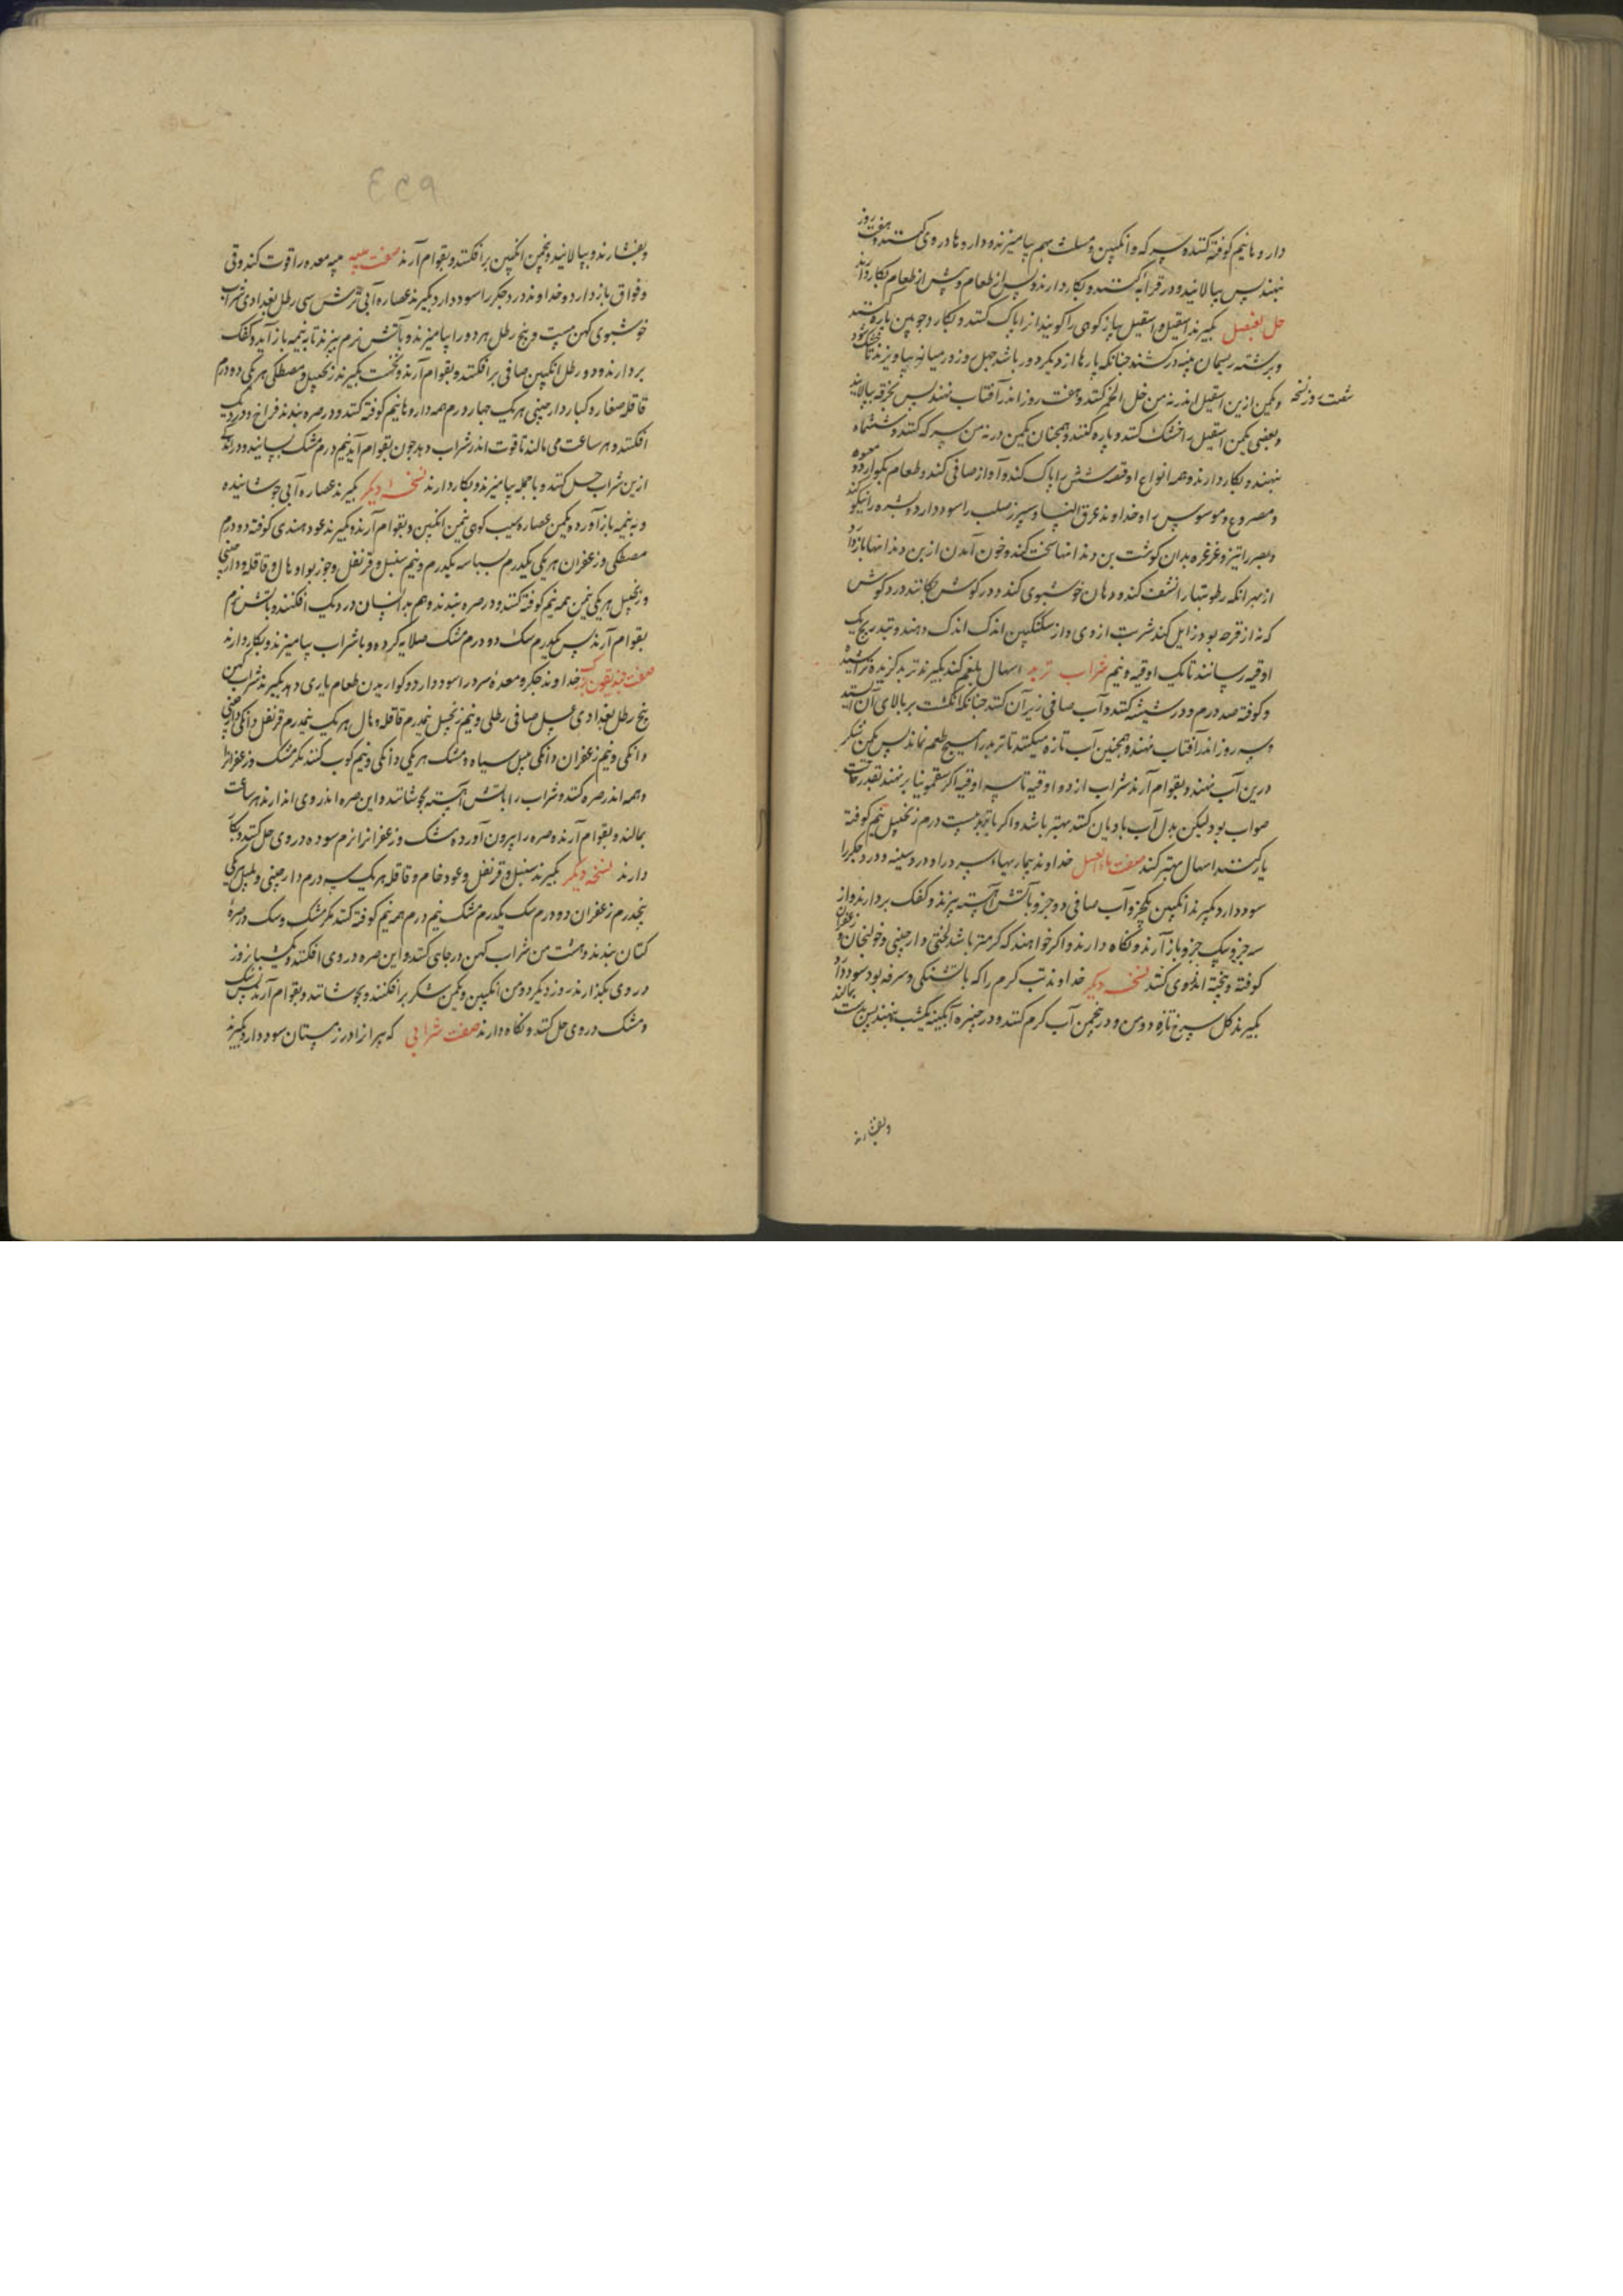 دارو ها نیم کوفته کنند و سرکه و انگبین و مثلث بهم بیامیزند و دارو ها در وی کنند و هفت روز
بنهند پس بپالایند و در قرابه کنند و بکار دارند و پس از طعام و پیش از طعام بکار دارند
خل العنصل بگیرند اسقیل و اسقیل پیاز کوهی را گویند او را پاک کنند و بکارد چوبین پاره کنند
و برشته ریسمان پنبه درکشند چنانکه پارها از دیگر دور باشد چهل روز در سایه بیاویزند تا خشک شود
و یکمن ازین اسقیل اندر نه من خل الخمر کنند و هفت روز اندر آفتاب نهند پس بخرقه بپالایند
شصت روز نسخه
و بعضی یکمن اسقیل را خشک کنند و پاره کنند و همچنان یکمن در نه من سرکه کنند و ششماه
بنهند و بکار دارند و همه انواع او قصبه شش را پاک کند و آواز صافی کند و طعام بگوارد و معده
و مصروع و موسوس را و خداوند عرق النسا و سپرز صلب را سود دارد و بشره را نیکو کند
و بصر را تیز و غرغره بدان گوشت بن دندانها سخت کند و خون آمدن از بن دندانها باز دارد
از بهر آنکه رطوبتها را نشف کند و دهان خوشبوی کند و در گوش چکانند درد گوش
که نه از قرحه بود زایل کند شربت از وی و از سکنگبین اندک اندک دهند و بتدریج بیک
اوقیه رسانند تا یک اوقیه و نیم شراب تربد اسهال بلغم کند بگیرند تربد گزیده تراشیده
و کوفته صد درم و در شیشه کنند و آب صافی زبر آن کنند چنانکه انگشت بر بالای آن آید
و سه روز اندر آفتاب بنهند و همچنین آب تازه میکنند تا تربد را هیچ طعم نماند پس یکمن شکر
درین آب نهند و بقوام آرند شراب از دو اوقیه تا سه اوقیه اگر سقمونیا بر نهند بقدر حاجت
صواب بود لیکن بدل آب بادیان کنند بهتر باشد و اگر با تربد بیست درم زنجبیل نیم کوفته
یار کنند اسهال بهتر کند صفت ماء العسل خداوند بیماریهاء سرد را و درد سینه و درد جگر را
سود دارد بگیرند انگبین یکجزو آب صافی دو جزو بآتش آهسته بپزند و کفک بردارند و از
سه جزو بیک جزو باز آرند و نگاه دارند و اگر خواهند که گرمتر باشد لختی دارچینی و خولنجان و زعفران
کوفته و بیخته اندر وی کنند نسخه دیگر خداوند تب گرم را که با تشنگی و سرفه بود سود دارد
بگیرند گل سرخ تازه دو من و در پنجمن آب گرم کنند و در خنبره آبگینه یکشب بنهند پس بدست بمالند
و بفشارند
و بفشارند و بپالایند و پنجمن انگبین بر افکنند و بقوام آرند صفت میبه میبه معده را قوت کند و قی
و فواق باز دارد و خداوند درد جگر را سود دارد بگیرند عصاره آبی ترش سی رطل بغدادی شراب
خوشبوی کهن بیست و پنج رطل هر دو را بیامیزند و بآتش نرم بپزند تا بنیمه باز آید و کفک
بردارند و دو رطل انگبین صافی بر افکنند و بقوام آرند و نخست بگیرند زنجبیل و مصطکی هریکی دو درم
قاقله صغار و کبار دارچینی هریک چهار درم همه دارو ها نیم کوفته کنند و در صره بندند فراخ و در دیگ
افکنند و هر ساعت می مالند تا قوت اندر شراب دهد چون بقوام آید نیم درم مشک بسایند و در اندکی
ازین شراب حل کنند و با جمله بیامیزند و بکار دارند نسخهٔ دیگر بگیرند عصاره آبی جوشانیده
و به نیمه باز آورده و یکمن عصاره سیب کوهی پنجمن انگبین و بقوام آرند و بگیرند عود هندی کوفته دو درم
مصطکی و زعفران هر یکی یکدرم بسباسه یکدرم و نیم سنبل و قرنفل و جوزبوا و هال و قاقله و دارچینی
و زنجبیل هر یکی ثمن همه نیم کوفته کنند و در صره بندند و هم بدانسان در دیگ افکنند و بآتش نرم
بقوام آرند پس یکدرم سک دو درم مشک صلایه کرده و با شراب بیامیزند و بکار دارند
صفت خندیقون خداوند جگر و معدهٔ سرد را سود دارد و گواریدن طعام یاری دهد بگیرند شراب کهن
پنج رطل بغدادی عسل صافی رطلی و نیم زنجبیل نیمدرم قاقله و هال هریک نیمدرم قرنفل دانگی دارچینی
دانگی و نیم زعفران دانگی پلپل سیاه و مشک هریکی دانگی و نیم کوب کنند مگر مشک و زعفران
و همه اندر صره کنند و شراب را بآتش آهسته بجوشانند و این صره اندر وی اندازند هر ساعت
بمالند و بقوام آرند و صره را بیرون آورده مشک و زعفران را نرم سوده در وی حل کنند و بکار
دارند نسخه دیگر بگیرند سنبل و قرنفل و عود خام و قاقله هریک سه درم دارچینی و پلپل هریکی
پنجدرم زعفران دو درم سک یکدرم مشک نیم درم همه نیم کوفته کنند مگر مشک و سک در صرهٔ
کتان بندند و هشت من شراب کهن در جای کنند و این صره در وی افکنند و یکشبانروز
در وی بگذارند روز دیگر دو من انگبین و یکمن شکر بر افکنند و بجوشانند و بقوام آرند پس سک
و مشک در وی حل کنند و نگاه دارند صفت شرابی که پیرانرا در زمستان سود دارد بگیرند